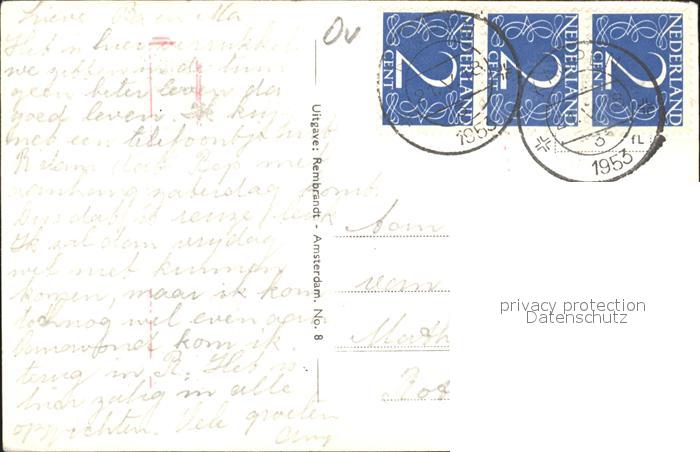 Lieve Pa en Ma
Het is hier verrukkelijk
we zitten in de tuin
geen beter leven dan
goed leven. Ik krijg
net een telefoontje
dat Kop met
zaterdag komt.
Dus dat is reuze leuk
Ik zal dan vrijdag
wel niet kunnen
komen, maar ik kom
toch nog wel even aan
kom ik
terug in R. Het is
hier zalig in alle
opzichten. Vele groeten
Ov
Uitgave: Rembrandt - Amsterdam. No. 8
NEDERLAND
2
CENT
NEDERLAND
2
NEDERLAND
2
CENT
1953
1953
Aan
van
Math
Rot
privacy protection
Datenschutz